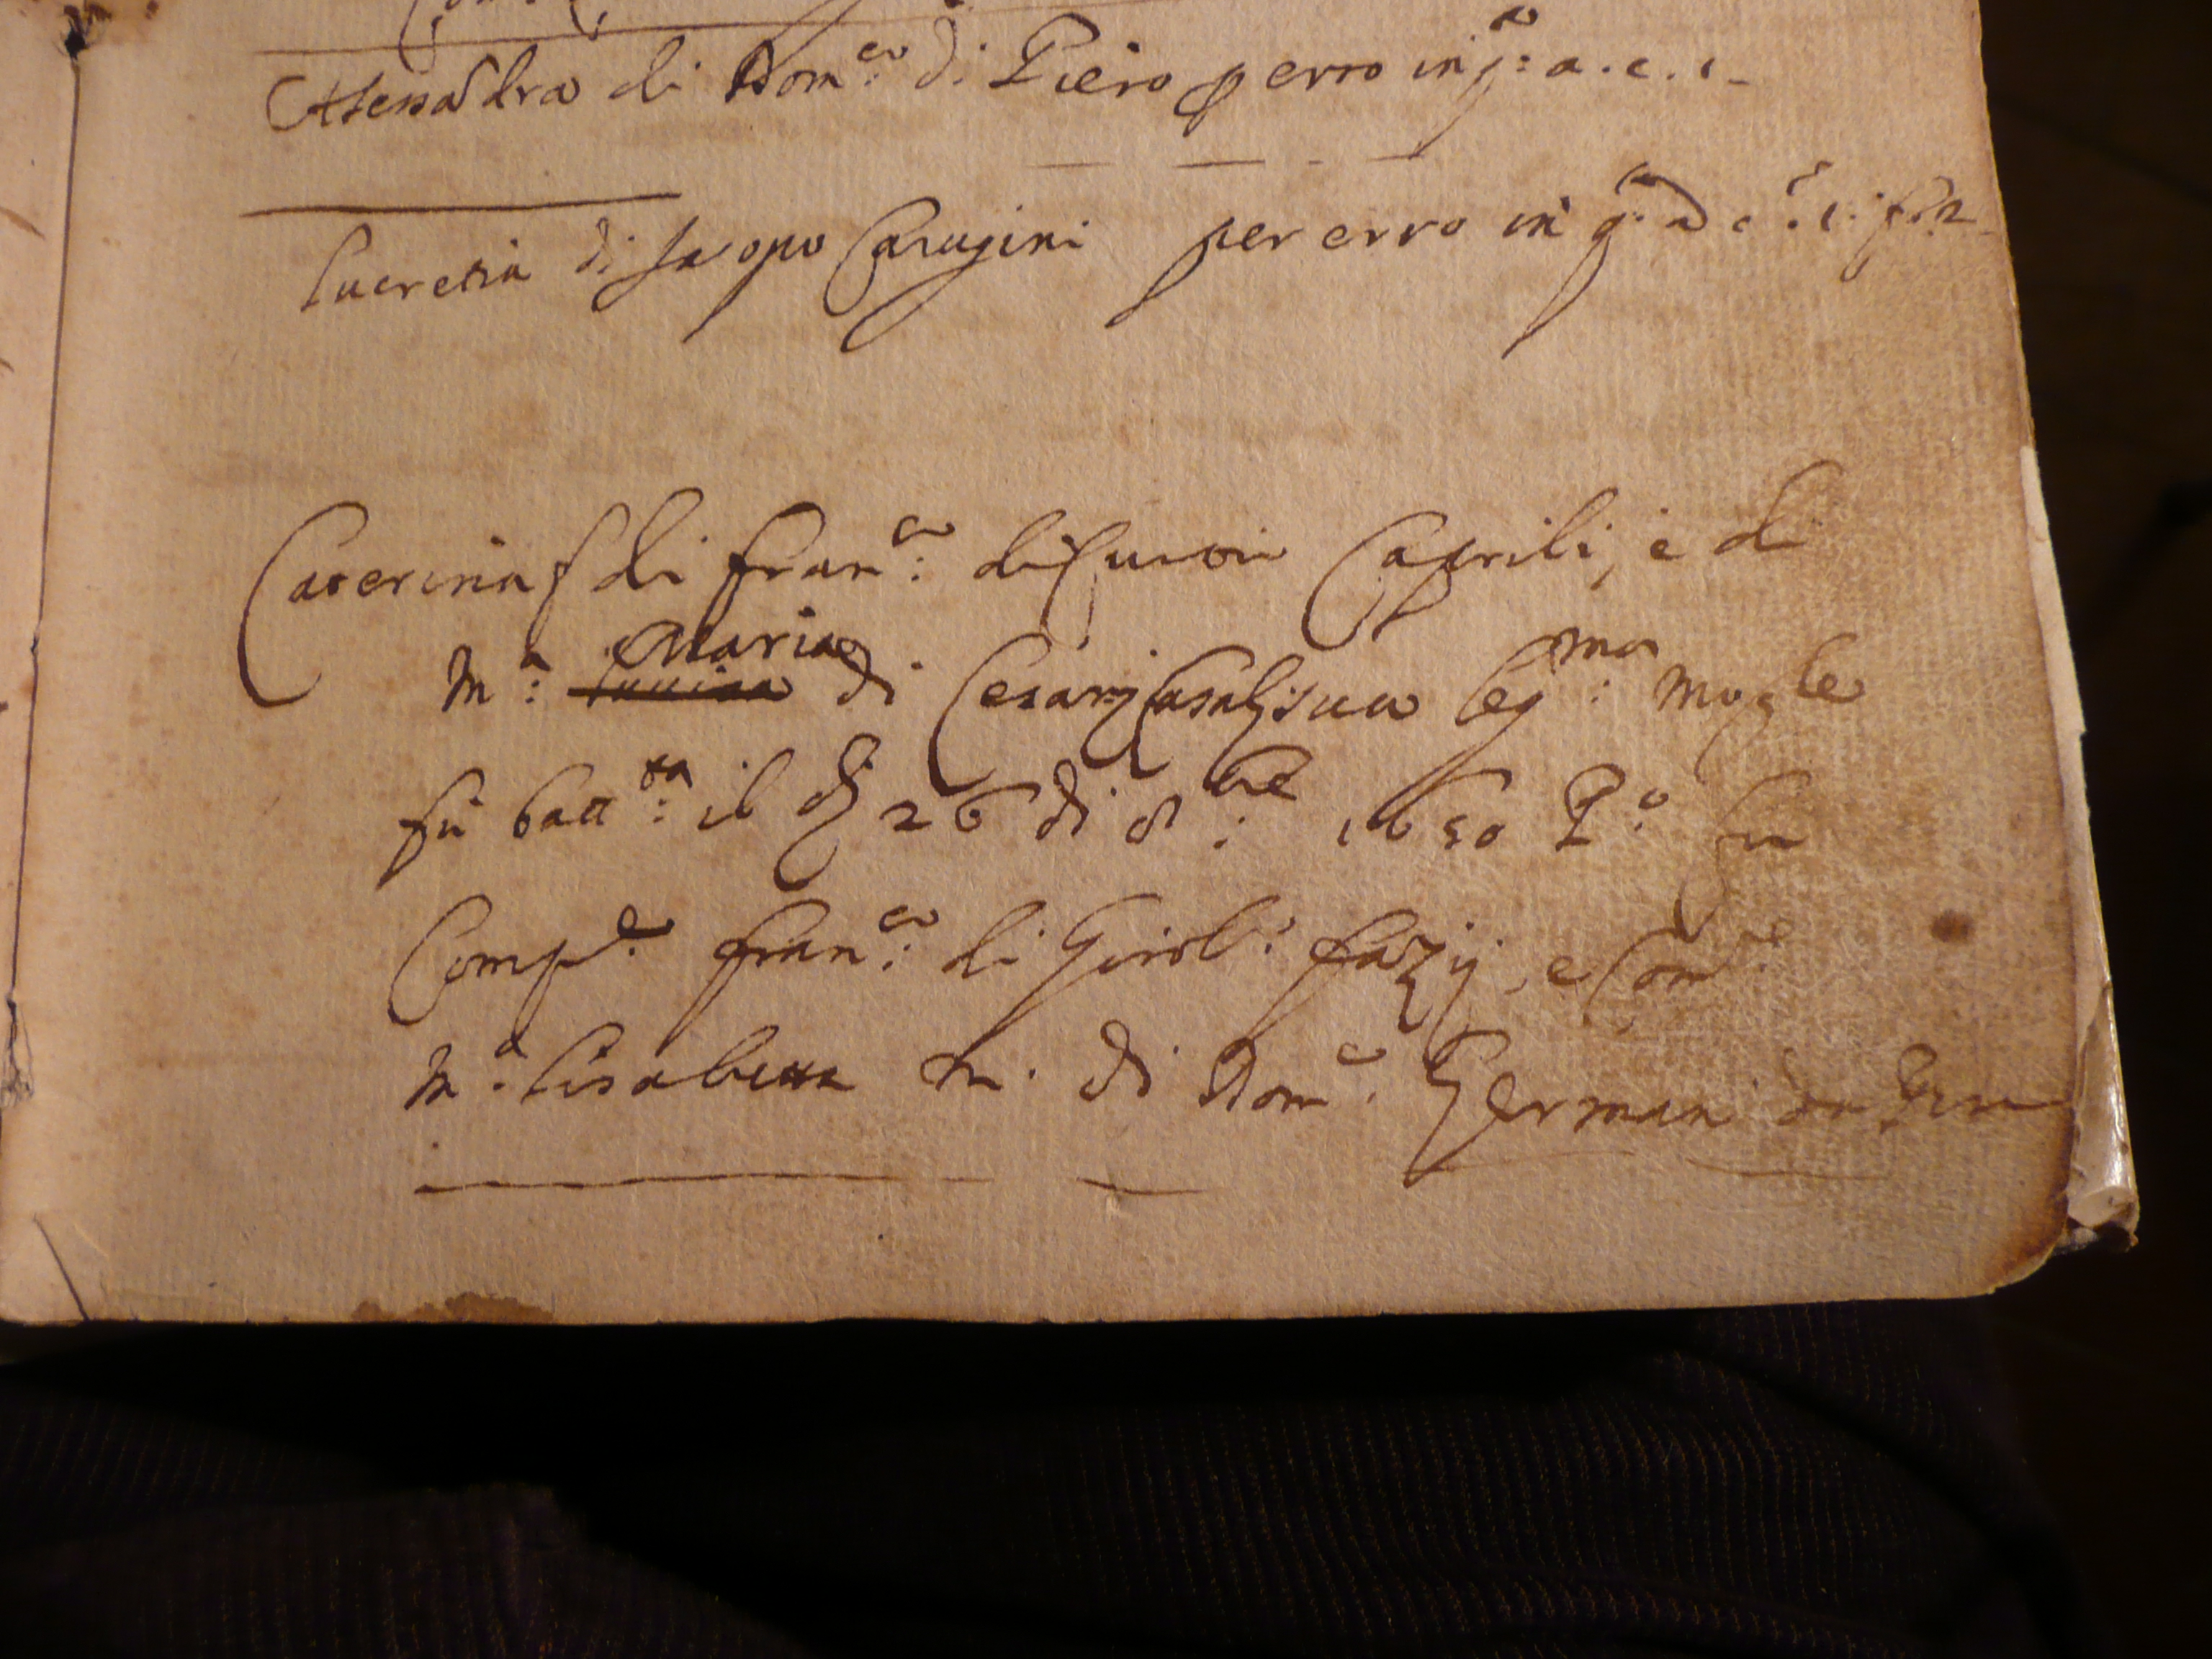 Alessa dra di Dom.co di Piero p erro in q.o a. c. 1
Lucretia di Jacopo Carugini per erro in q.o a c. 1.
Caterina f di Fran.co di Caprili, e di
M.a Maria di Cesarj Casalj sua leg.ma mogle
fù batt.ta il dj 26 di 8.bre 1650 P.o fu
Comp.e Fran.co di Girol.o Fazij, e Com.re
M.a Lisabetta m. di Dom.co Germani da